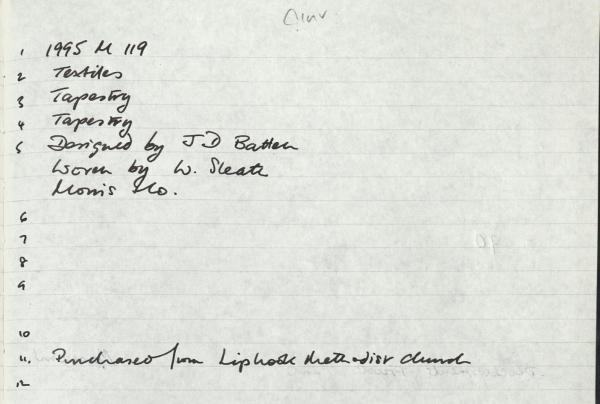 1 1995 M 119
2 Textiles
3 Tapestry
4 Tapestry
5 Designed by J D Batten
Woven by W. Sleath
Morris & Co.
6
7
8
9
10
11. Purchased from Liphook Methodist Church
12